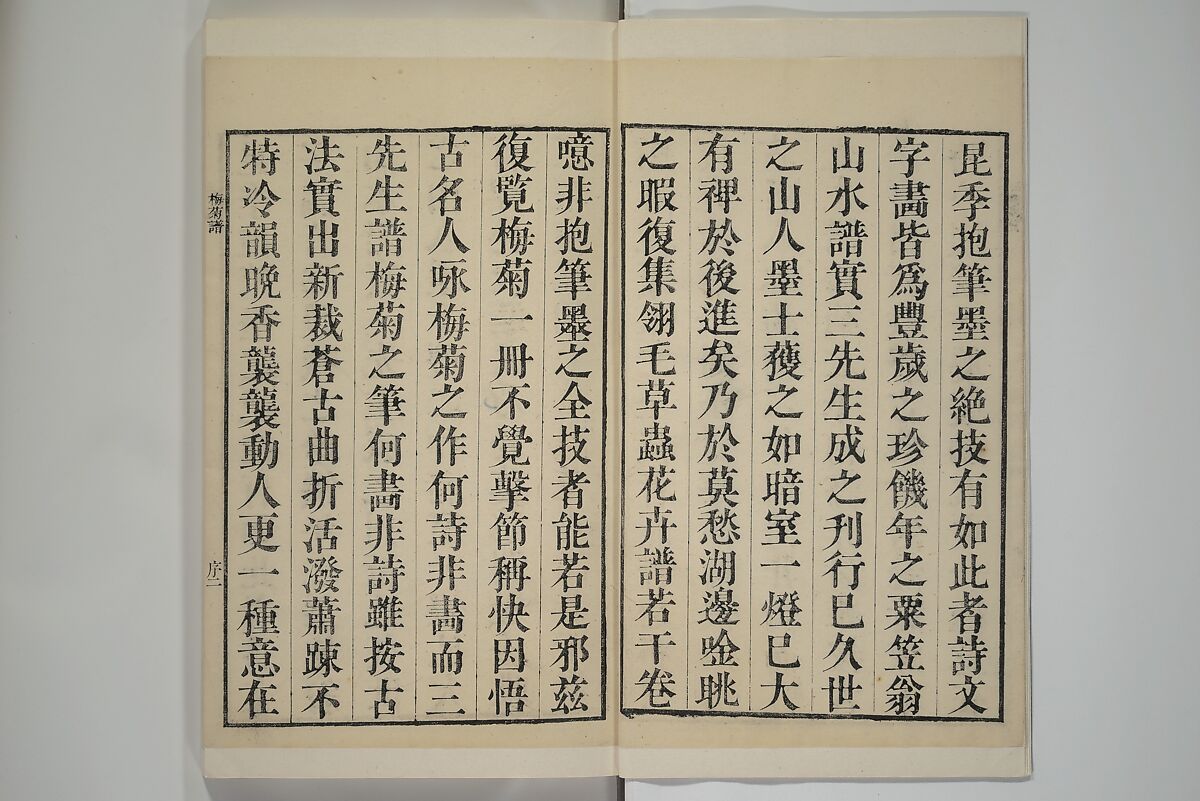 昆季抱筆墨之絶技有如此者詩文
字畵皆爲豐歲之珍饑年之粟笠翁
山水譜實三先生成之刋行巳久世
之山人墨士獲之如暗室一燈巳大
有裨於後進矣乃於莫愁湖邊唫眺
之暇復集翎毛草蟲花卉譜若干卷
噫非抱筆墨之全技者能若是邪兹
復覽梅菊一冊不覺擊節稱快因悟
古名人咏梅菊之作何詩非畵而三
先生譜梅菊之筆何畵非詩雖按古
法實出新裁蒼古曲折活潑蕭踈不
特冷韻晚香襲襲動人更一種意在
梅菊譜
序二